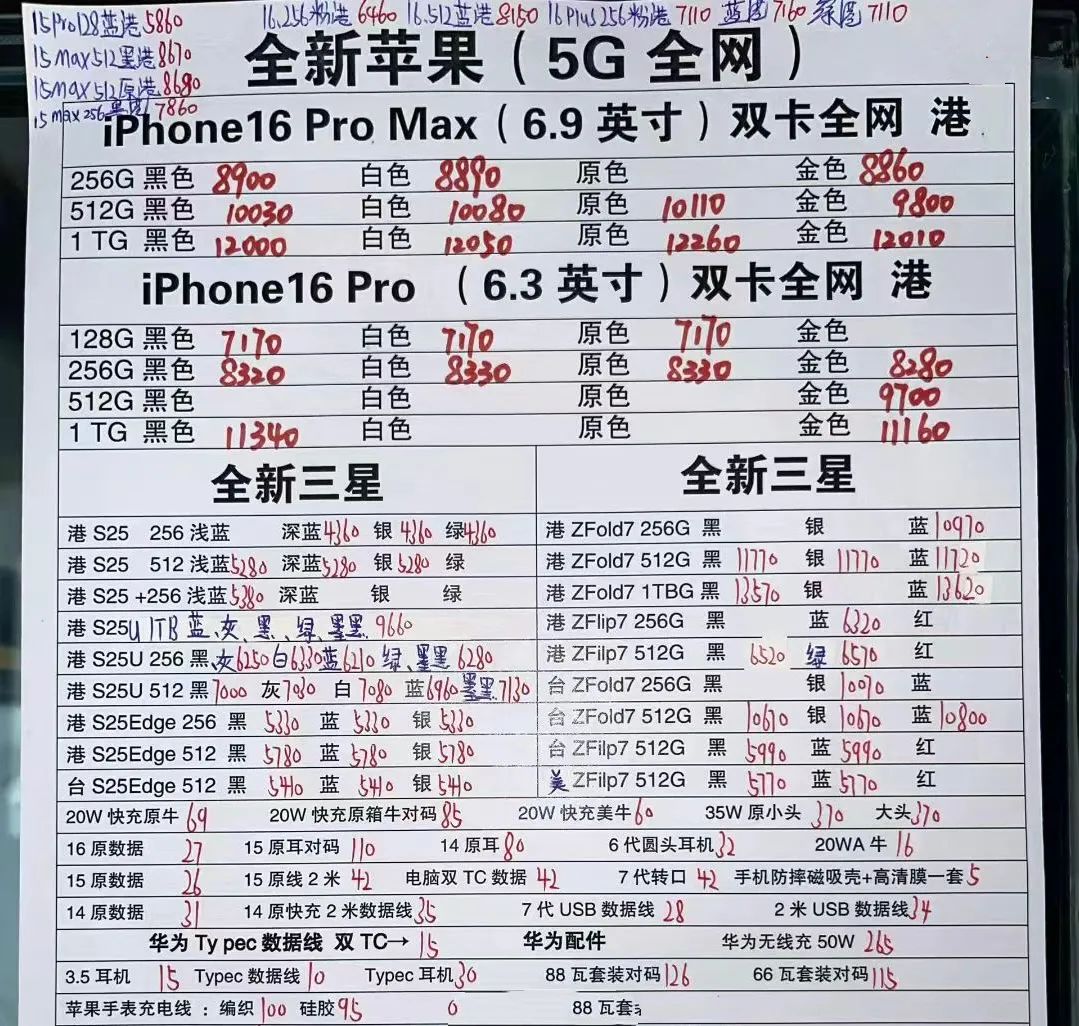 15Pro128蓝港5860 16.256粉港6460 16.512蓝港8150 16Plus256粉港7110 蓝港7160 绿港7110
15Max512黑港8670
15Max512原港8680
15Max256黑港7860
全新苹果（5G 全网）
iPhone16 Pro Max（6.9 英寸）双卡全网 港
256G 黑色 8900 白色 8890 原色 金色 8860
512G 黑色 10030 白色 10080 原色 10110 金色 9800
1 TG 黑色 12000 白色 12050 原色 12260 金色 12010
iPhone16 Pro （6.3 英寸）双卡全网 港
128G 黑色 7170 白色 7170 原色 7170 金色
256G 黑色 8320 白色 8330 原色 8330 金色 8280
512G 黑色 白色 原色 金色 9700
1 TG 黑色 11340 白色 原色 金色 11160
全新三星 全新三星
港 S25 256 浅蓝 深蓝4360 银4360 绿4360 港 ZFold7 256G 黑 银 蓝10970
港 S25 512 浅蓝5280 深蓝5280 银5280 绿 港 ZFold7 512G 黑 11770 银 11770 蓝11720
港 S25 +256 浅蓝5380 深蓝 银 绿 港 ZFold7 1TBG 黑 13570 银 蓝 13620
港 S25U 1TB 蓝、灰、黑、绿、墨黑 9660 港 ZFlip7 256G 黑 蓝 6320 红
港 S25U 256 黑、灰6250白6330蓝6210 绿、墨黑 6280 港 ZFilp7 512G 黑 6520 绿 6570 红
港 S25U 512 黑7000 灰7030 白 7080 蓝6960墨黑7130 台 ZFold7 256G 黑 银 10070 蓝
港 S25Edge 256 黑 5330 蓝 5330 银 5330 台 ZFold7 512G 黑 10670 银 10670 蓝10800
港 S25Edge 512 黑 5780 蓝 5780 银 5780 台 ZFilp7 512G 黑 5990 蓝 5990 红
台 S25Edge 512 黑 5440 蓝 5440 银 5440 美 ZFilp7 512G 黑 5770 蓝 5770 红
20W 快充原牛 69 20W 快充原箱牛对码 85 20W 快充美牛 60 35W 原小头 370 大头370
16 原数据 27 15 原耳对码 110 14 原耳 80 6 代圆头耳机 32 20WA 牛 16
15 原数据 26 15 原线 2 米 42 电脑双 TC 数据 42 7 代转口 42 手机防摔磁吸壳+高清膜一套 5
14 原数据 31 14 原快充 2 米数据线 35 7 代 USB 数据线 28 2 米 USB 数据线 34
华为 Ty pec 数据线 双 TC→ 15 华为配件 华为无线充 50W 265
3.5 耳机 15 Typec 数据线 10 Typec 耳机 30 88 瓦套装对码 126 66 瓦套装对码 115
苹果手表充电线 ：编织 100 硅胶 95 0 88 瓦套